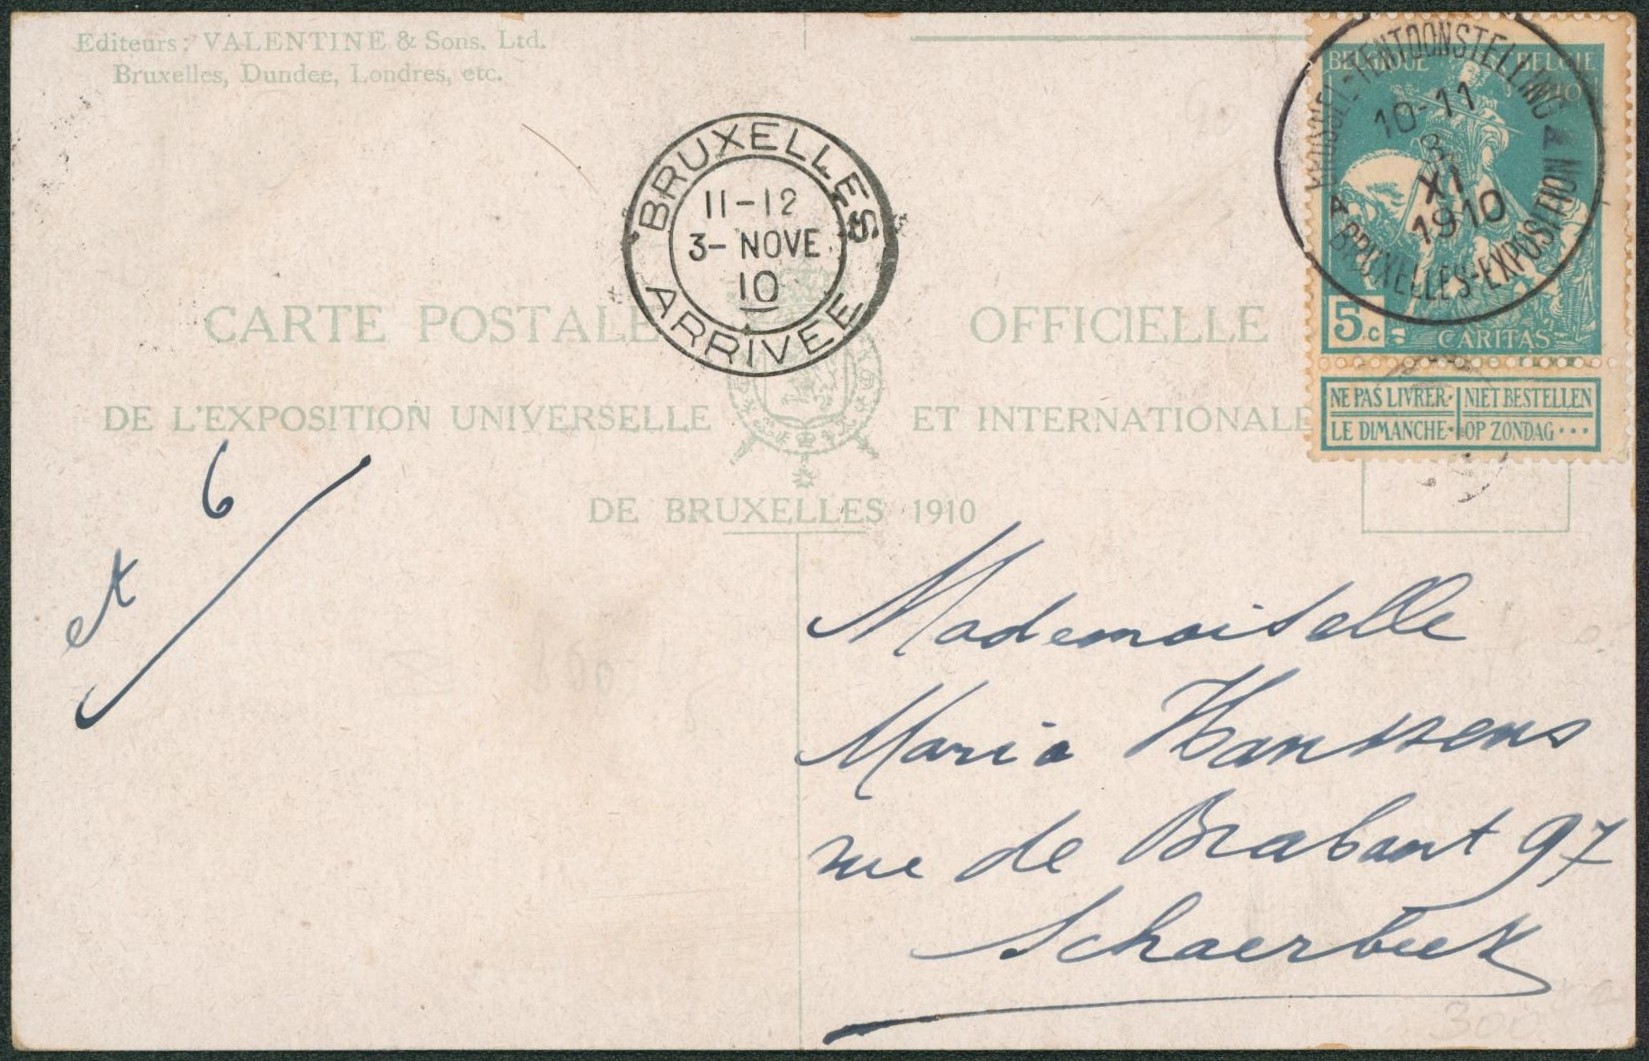 Editeurs: VALENTINE & Sons, Ltd.
Bruxelles, Dundee, Londres, etc.
BRUXELLES
11-12
3- NOVE
10
ARRIVEE
BELGIQUE BELGIË
1910
TENTOONSTELLING
10-11
3
XI
1910
BRUXELLES-EXPOSITION
5c
CARITAS
NE PAS LIVRER NIET BESTELLEN
LE DIMANCHE OP ZONDAG
CARTE POSTALE OFFICIELLE
DE L'EXPOSITION UNIVERSELLE ET INTERNATIONALE
DE BRUXELLES 1910
6
et
Mademoiselle
Maria Hanssens
rue de Brabant 97
Schaerbeek
300